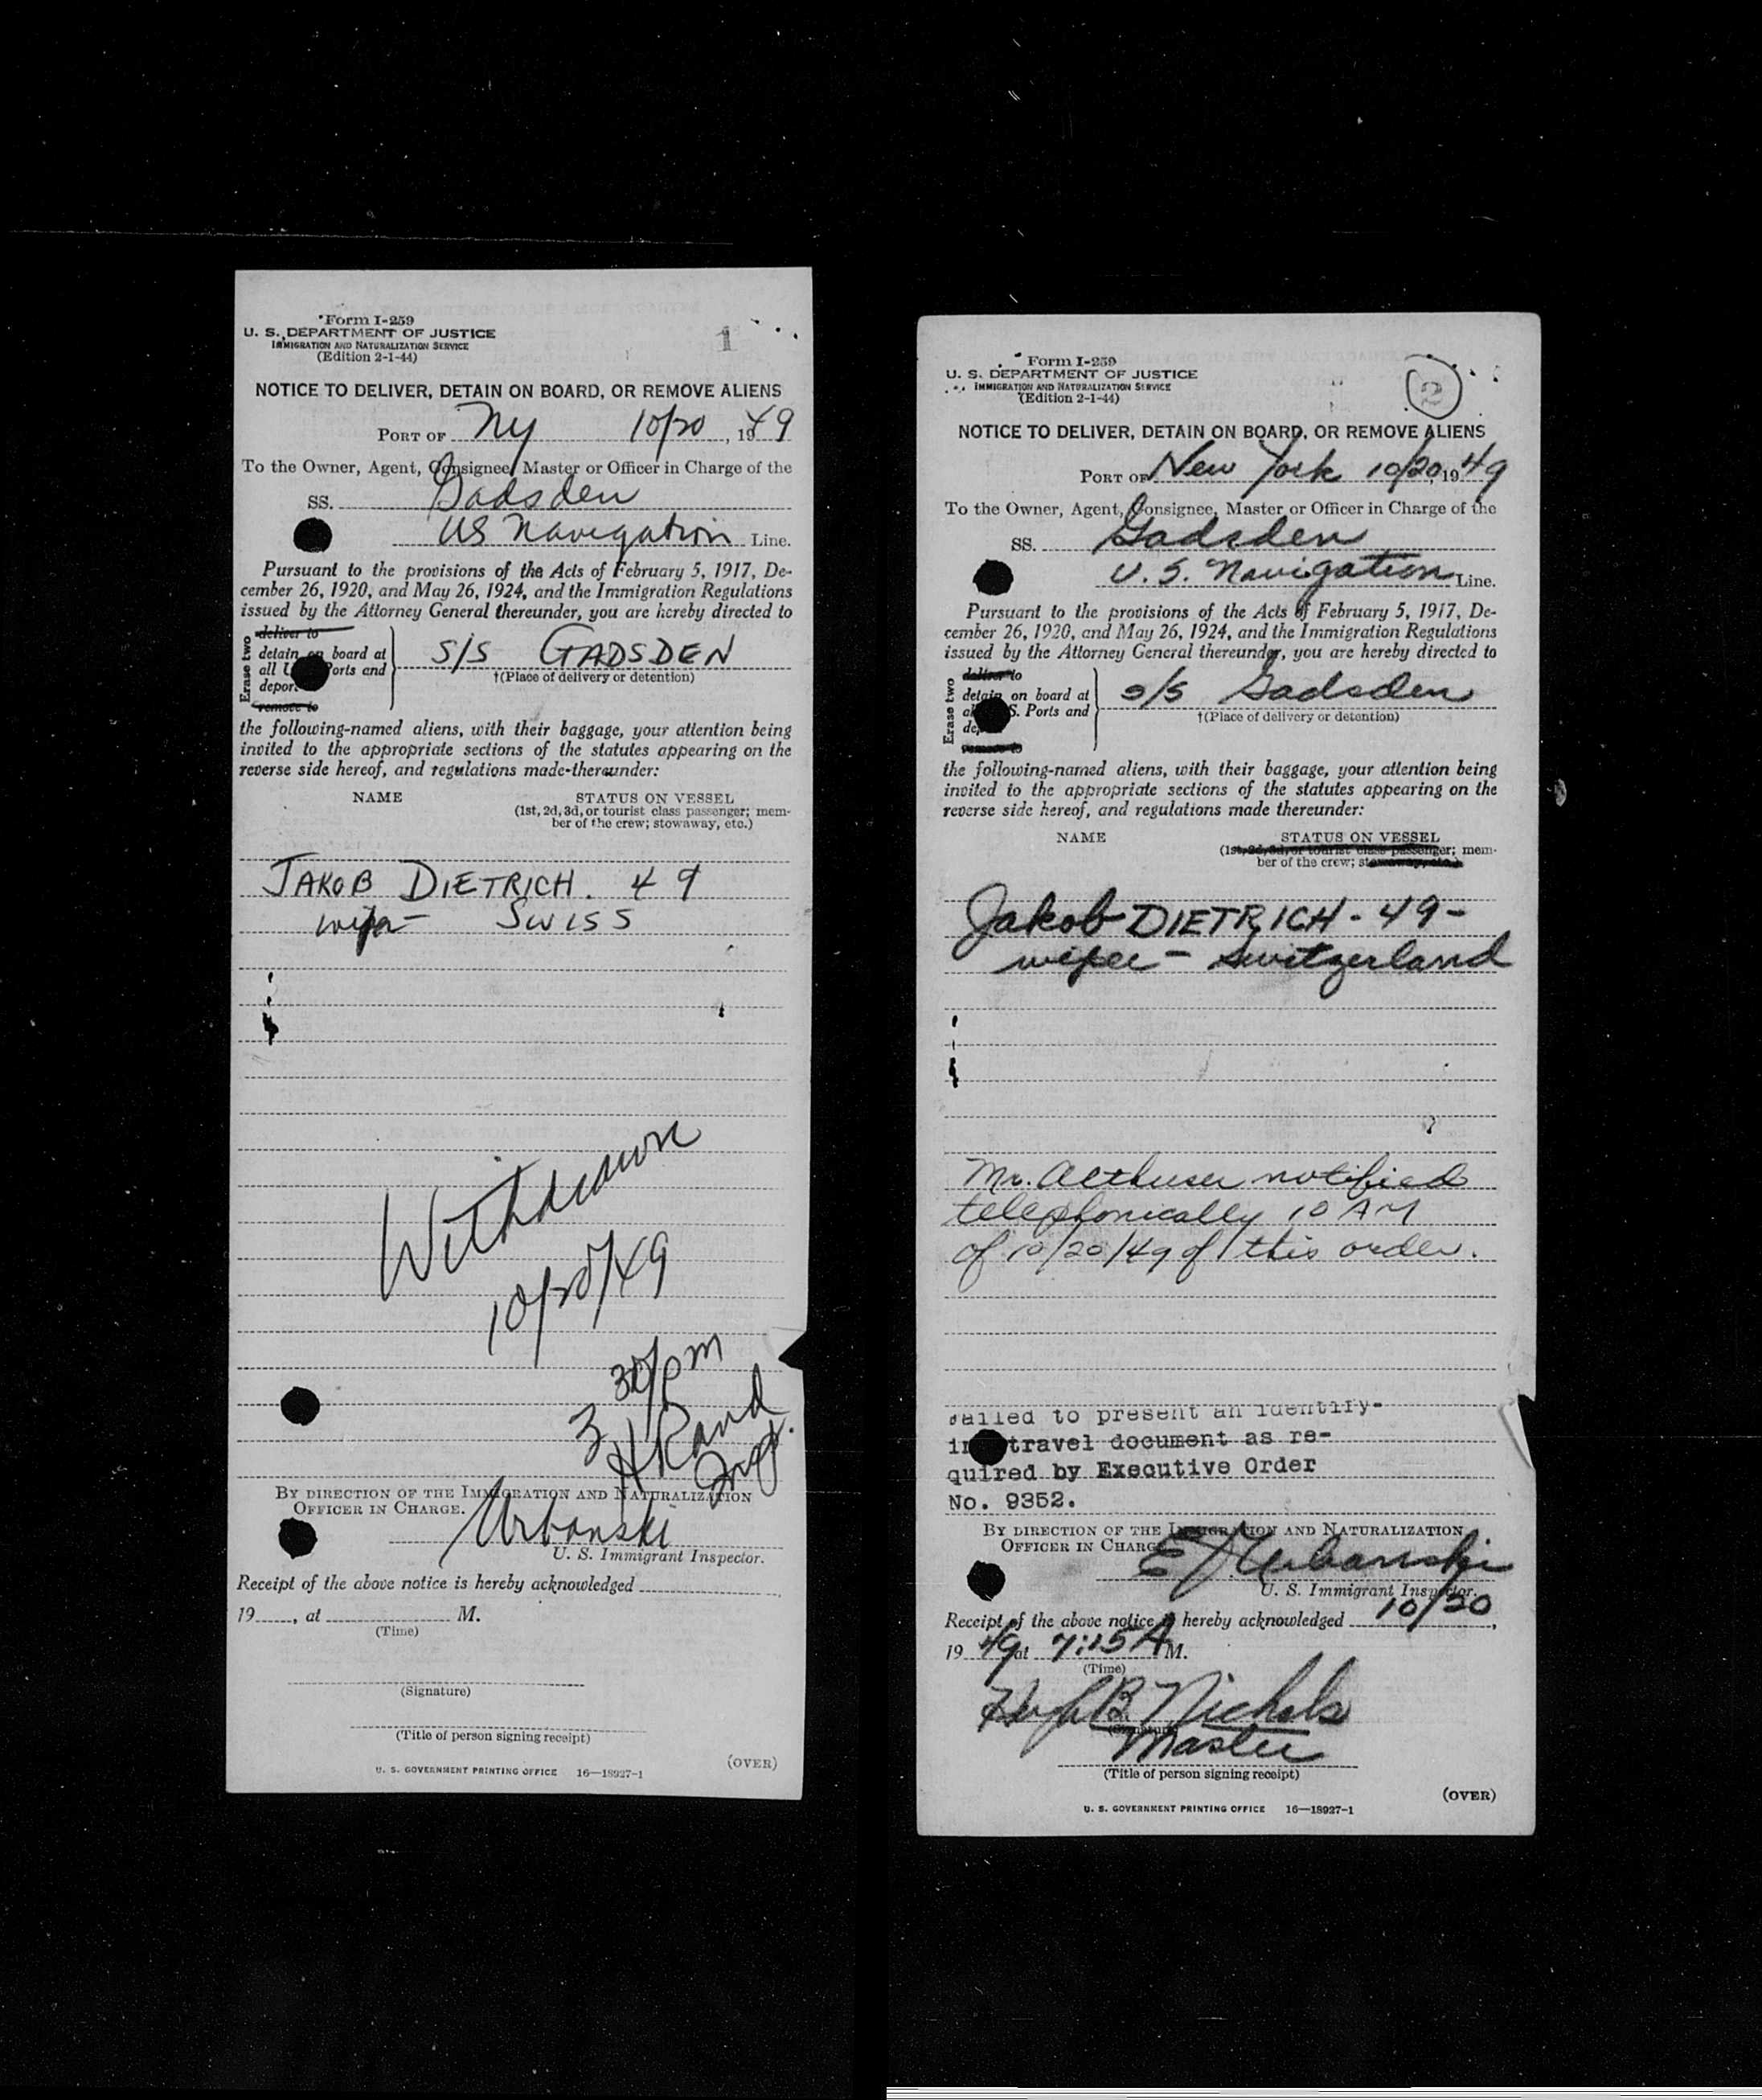 Form I-259
U. S. DEPARTMENT OF JUSTICE
IMMIGRATION AND NATURALIZATION SERVICE
(Edition 2-1-44)
1
NOTICE TO DELIVER, DETAIN ON BOARD, OR REMOVE ALIENS
PORT OF Ny 10/20, 1949
To the Owner, Agent, Consignee, Master or Officer in Charge of the
SS. Gadsden
US Navigation Line.
Pursuant to the provisions of the Acts of February 5, 1917, De-
cember 26, 1920, and May 26, 1924, and the Immigration Regulations
issued by the Attorney General thereunder, you are hereby directed to
Erase two
deliver to
detain on board at
all U Ports and
depor
remove to
S/S GADSDEN
†(Place of delivery or detention)
the following-named aliens, with their baggage, your attention being
invited to the appropriate sections of the statutes appearing on the
reverse side hereof, and regulations made thereunder:
NAME STATUS ON VESSEL
(1st, 2d, 3d, or tourist class passenger; mem-
ber of the crew; stowaway, etc.)
JAKOB DIETRICH. 49
SWISS
Withdrawn
10/20/49
3 30/pm
H Rand
Insp.
BY DIRECTION OF THE IMMIGRATION AND NATURALIZATION
OFFICER IN CHARGE.
Urbanski
U. S. Immigrant Inspector.
Receipt of the above notice is hereby acknowledged
19 , at M.
(Time)
(Signature)
(Title of person signing receipt)
(OVER)
U. S. GOVERNMENT PRINTING OFFICE 16—18927-1
Form I-259
U. S. DEPARTMENT OF JUSTICE
IMMIGRATION AND NATURALIZATION SERVICE
(Edition 2-1-44)
2
NOTICE TO DELIVER, DETAIN ON BOARD, OR REMOVE ALIENS
PORT OF New York 10/20, 1949
To the Owner, Agent, Consignee, Master or Officer in Charge of the
SS. Gadsden
U.S. Navigation Line.
Pursuant to the provisions of the Acts of February 5, 1917, De-
cember 26, 1920, and May 26, 1924, and the Immigration Regulations
issued by the Attorney General thereunder, you are hereby directed to
Erase two
deliver to
detain on board at
al S. Ports and
de
remove to
s/s Gadsden
†(Place of delivery or detention)
the following-named aliens, with their baggage, your attention being
invited to the appropriate sections of the statutes appearing on the
reverse side hereof, and regulations made thereunder:
NAME STATUS ON VESSEL
(1st, 2d, 3d, or tourist class passenger; mem-
ber of the crew; stowaway, etc.)
Jakob DIETRICH - 49 -
wiper - Switzerland
Mr. notified
telephonically 10 AM
of 10/20/49 of this order.
failed to present an identify-
in travel document as re-
quired by Executive Order
No. 9352.
BY DIRECTION OF THE IMMIGRATION AND NATURALIZATION
OFFICER IN CHARGE
E J Urbanski
U. S. Immigrant Inspector.
Receipt of the above notice is hereby acknowledged 10/20,
1949 at 7:15 A M.
(Time)
Hugh B. Nichols
(Signature)
Master
(Title of person signing receipt)
(OVER)
U. S. GOVERNMENT PRINTING OFFICE 16—18927-1